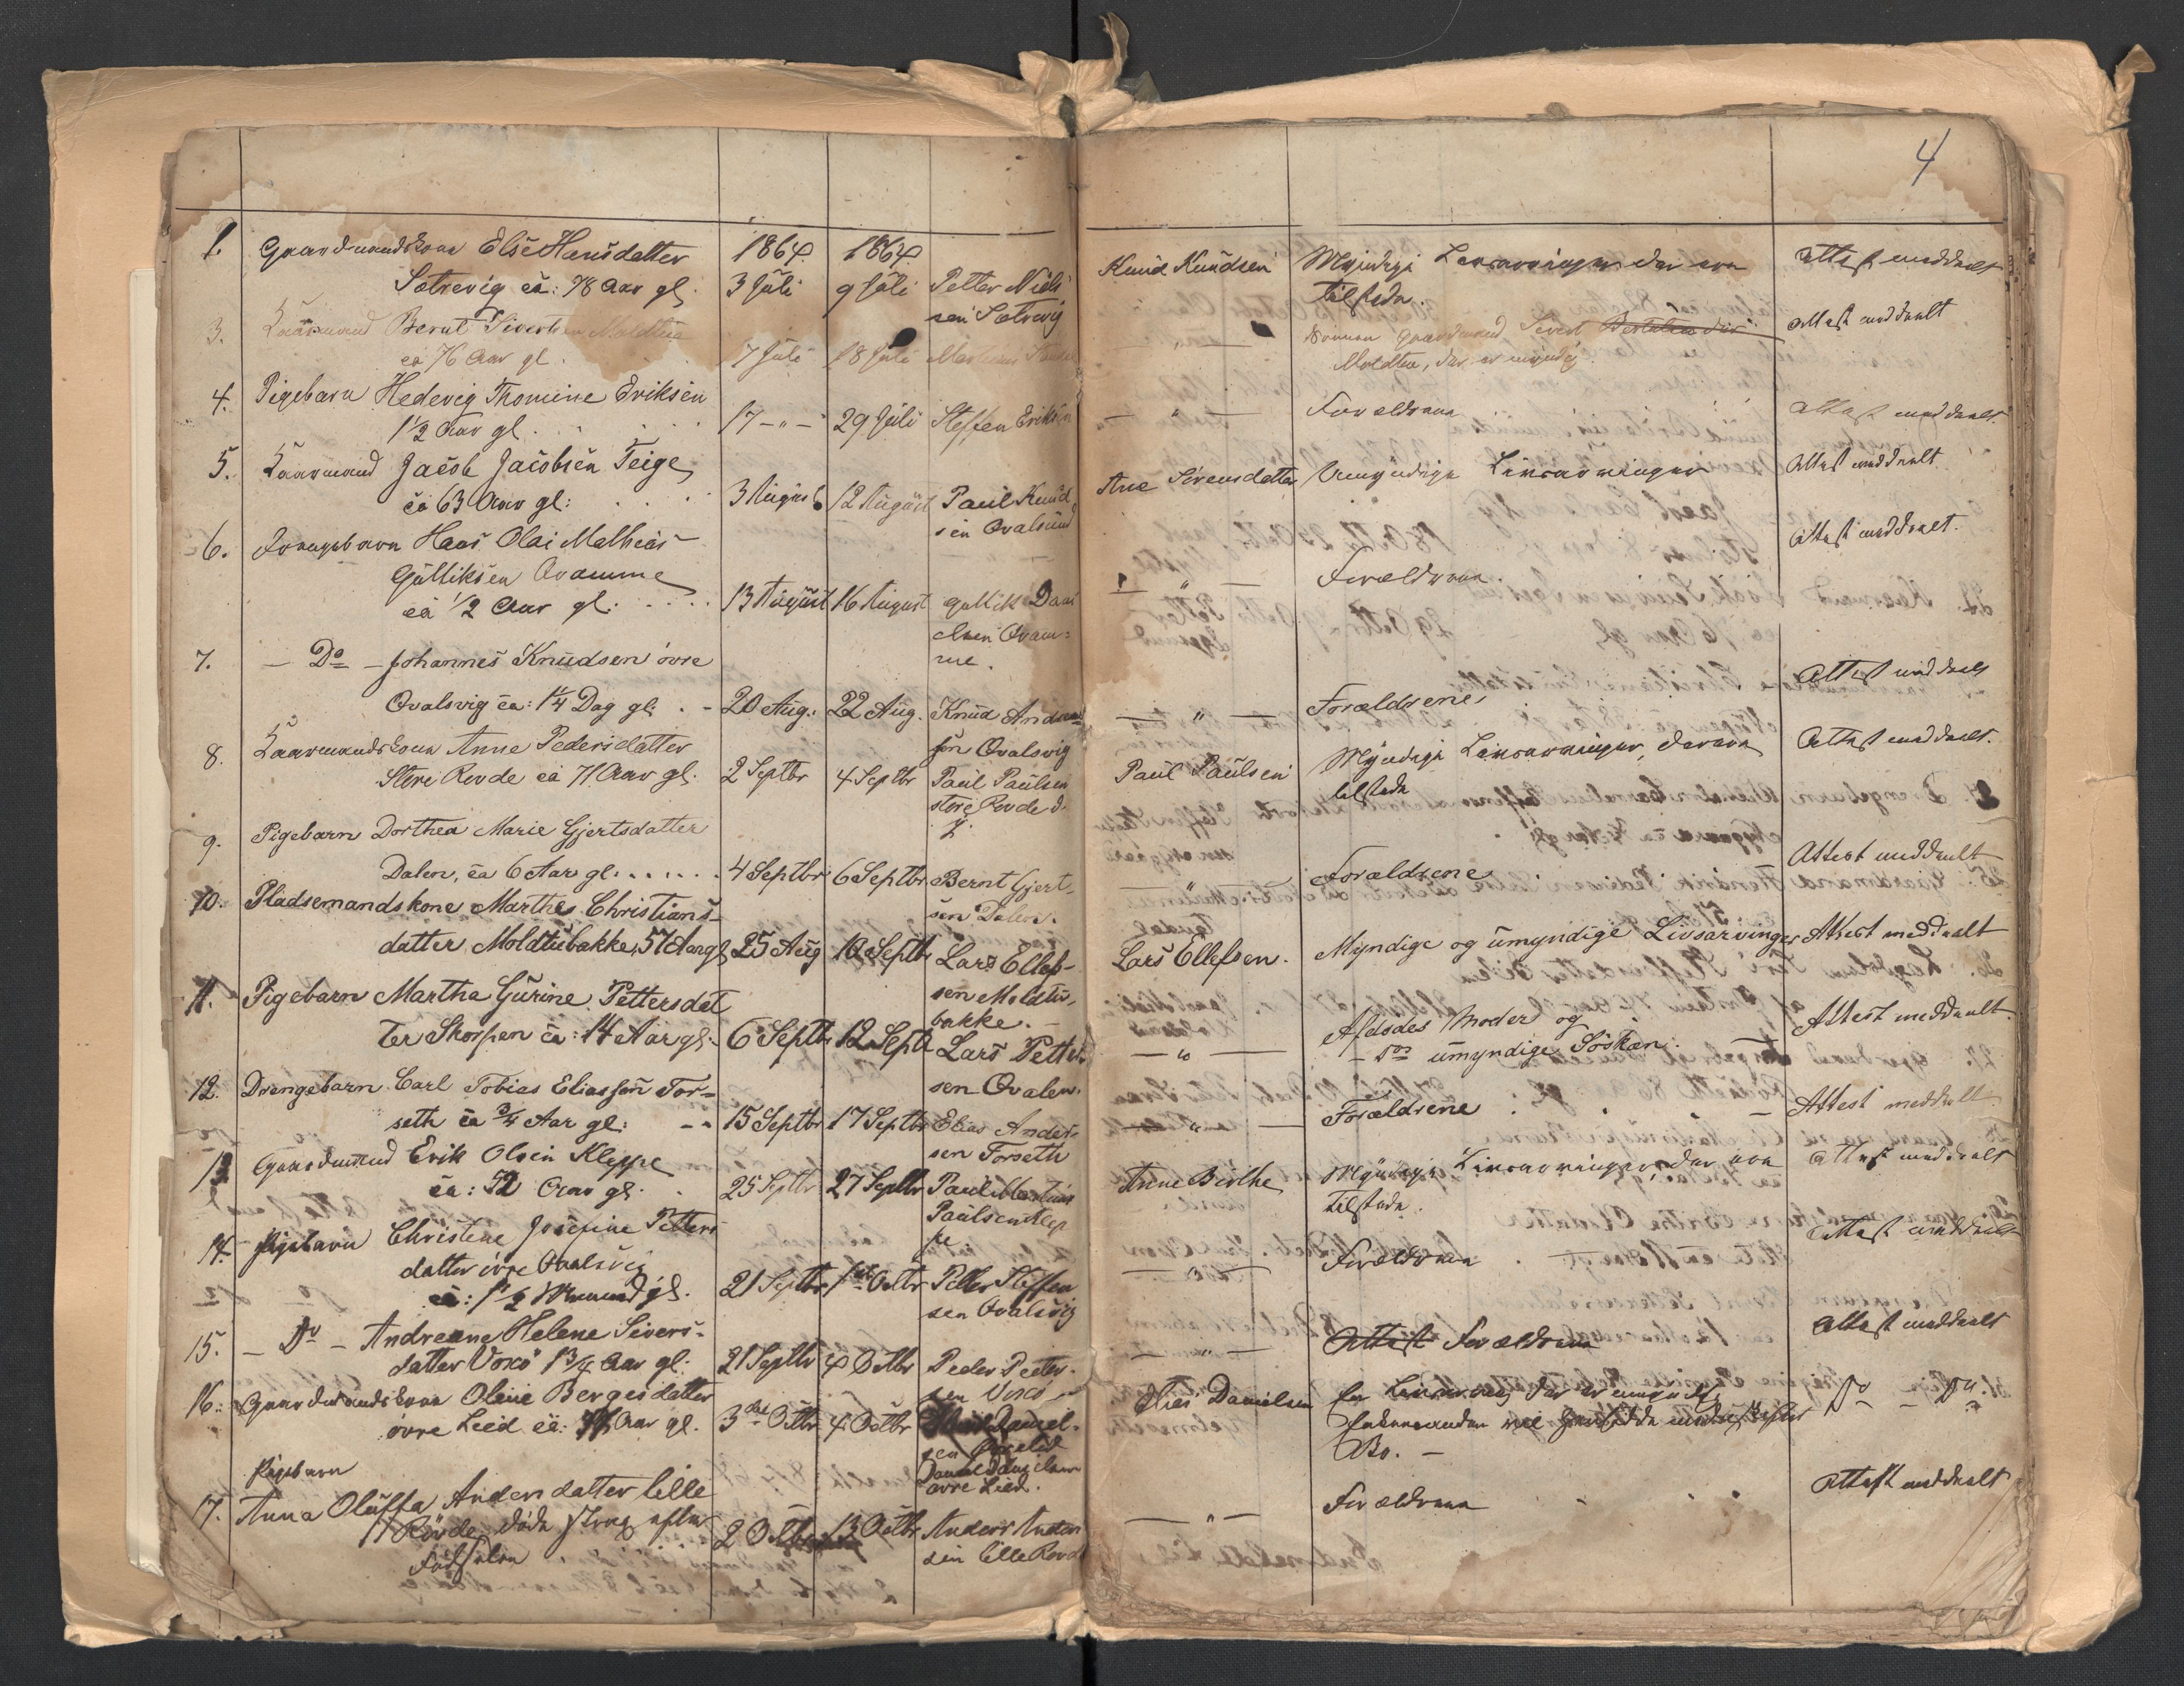 4
1. Gaardmandskone Else Hansdatter 1864. 1864.
Sætrevig ca: 78 Aar gl. 3 Juli 9 Juli Petter Niels
sen Sætrevig
Knud Knudsen Myndige Livsarvinger der ere Attest meddeelt
tilstede.
3. Kaarmand Bernt Sivertsen Moldtue
ca 76 Aar gl. 7 Juli 18 Juli
— " — Sönnen Gaardmand Sivert Attest meddeelt
Moldtue, der er myndig.
4. Pigebarn Hedevig Thomine Eriksen
1½ Aar gl. 17 — " — 29 Juli Steffen Eriksen
— " — Forældrene Attest meddeelt.
5. Kaarmand Jacob Jacobsen Teige
ca 63 Aar gl: 3 August 12 August Paul Knud
sen Qvalsund
Ane Sivensdatter Umyndige Livsarvinger Attest meddeelt
6. Drengebarn Hans Olai Mathias
Gulliksen Qvamme
ca ½ Aar gl. 13 August 16 August Gullik Dani
elsen Qvam=
me.
— " — Forældrene. Attest meddeelt.
7. — Do — Johannes Knudsen övre
Qvalsvig ca: 1¼ Dag gl: 20 Aug. 22 Aug. Knud Andreas
sen Qvalsvig
— " — Forældrene, Attest meddeelt
8. Kaarmandskone Anne Pedersdatter
Store Rovde ca 71 Aar gl. 2 Septbr 4 Septbr Paul Paulsen
store Rovde d.
y.
Paul Paulsen Myndige Livsarvinger, der ere Attest meddeelt.
tilstede
9. Pigebarn Dorthea Marie Gjertsdatter
Dalen, ca 6 Aar gl. . . . . 4 Septbr 6 Septbr. Bernt Gjert-
sen Dalen.
— " — Forældrene Attest meddeelt
10. Pladsemandskone Marthe Christians-
datter Moldtubakke, 57 Aar gl 25 Aug 10 Septbr Lars Ellef-
sen Moldtu-
bakke. —
Lars Ellefsen. Myndige og umyndige Livsarvinger Attest meddeelt
11. Pigebarn Martha Gurine Pettersdat
ter Skorpen ca: 14 Aar gl. 6 Septbr 12 Septbr Lars Petter
sen Qvalen.
— " — Afdödes Moder og Attest meddeelt.
— Do umyndige Söskæn. —
12. Drengebarn Carl Tobias Eliassen For-
seth ca ¾ Aar gl: 15 Septbr 17 Septbr Elias Ander-
sen Forseth
— " — Forældrene — Attest meddeelt
13 Gaardmand Erik Olsen Kleppe
ca: 52 Aar gl. 25 Septbr 27 Septbr Paul Martinus
Paulsen Klep
pe
Anne Birthe Myndige Livsarvinger, der ere Attest meddeelt
tilstede.
14. Pigebarn Christene Josefine Petters
datter övre Qvalsvig
ca: 1½ Maaned gl. 21 Septbr 1ste Octbr Petter Steffen
sen Qvalsvig
— " — Forældrene Attest meddeelt
15. — Do — Andreane Helene Sivers-
datter Voxö 1¾ Aar gl. 21 Septbr 4 Octbr Peder Peeter-
sen Voxö
— " — Attest Forældrene Attest meddeelt
16. Gaardmandskone Oline Bergesdatter
övre Leed ca: Aar gl. 3die Octbr 4 Octbr Daniel-
sen
Daniel Danielsen
övre Leed.
Elias Danielsen En Livsarving der er umyndig Do — Do
Enkemanden vil hensidde i uskiftet
Bo. —
Pigebarn
17. Anna Oluffa Andersdatter lille
Rövde döde strax efter 2 Octbr 13 Octbr Anders Anders
Födselen sen lille Rovde
— " — Forældrene Attest meddeelt